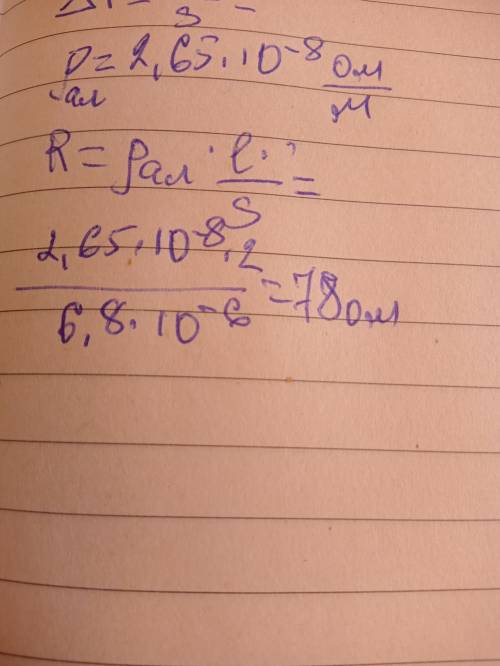 ρ = 2,65·10⁻⁸ Ом/м
ал
R = ρал · l · / S =
2,65·10⁻⁸·2 / 6,8·10⁻⁶ = 78 Ом